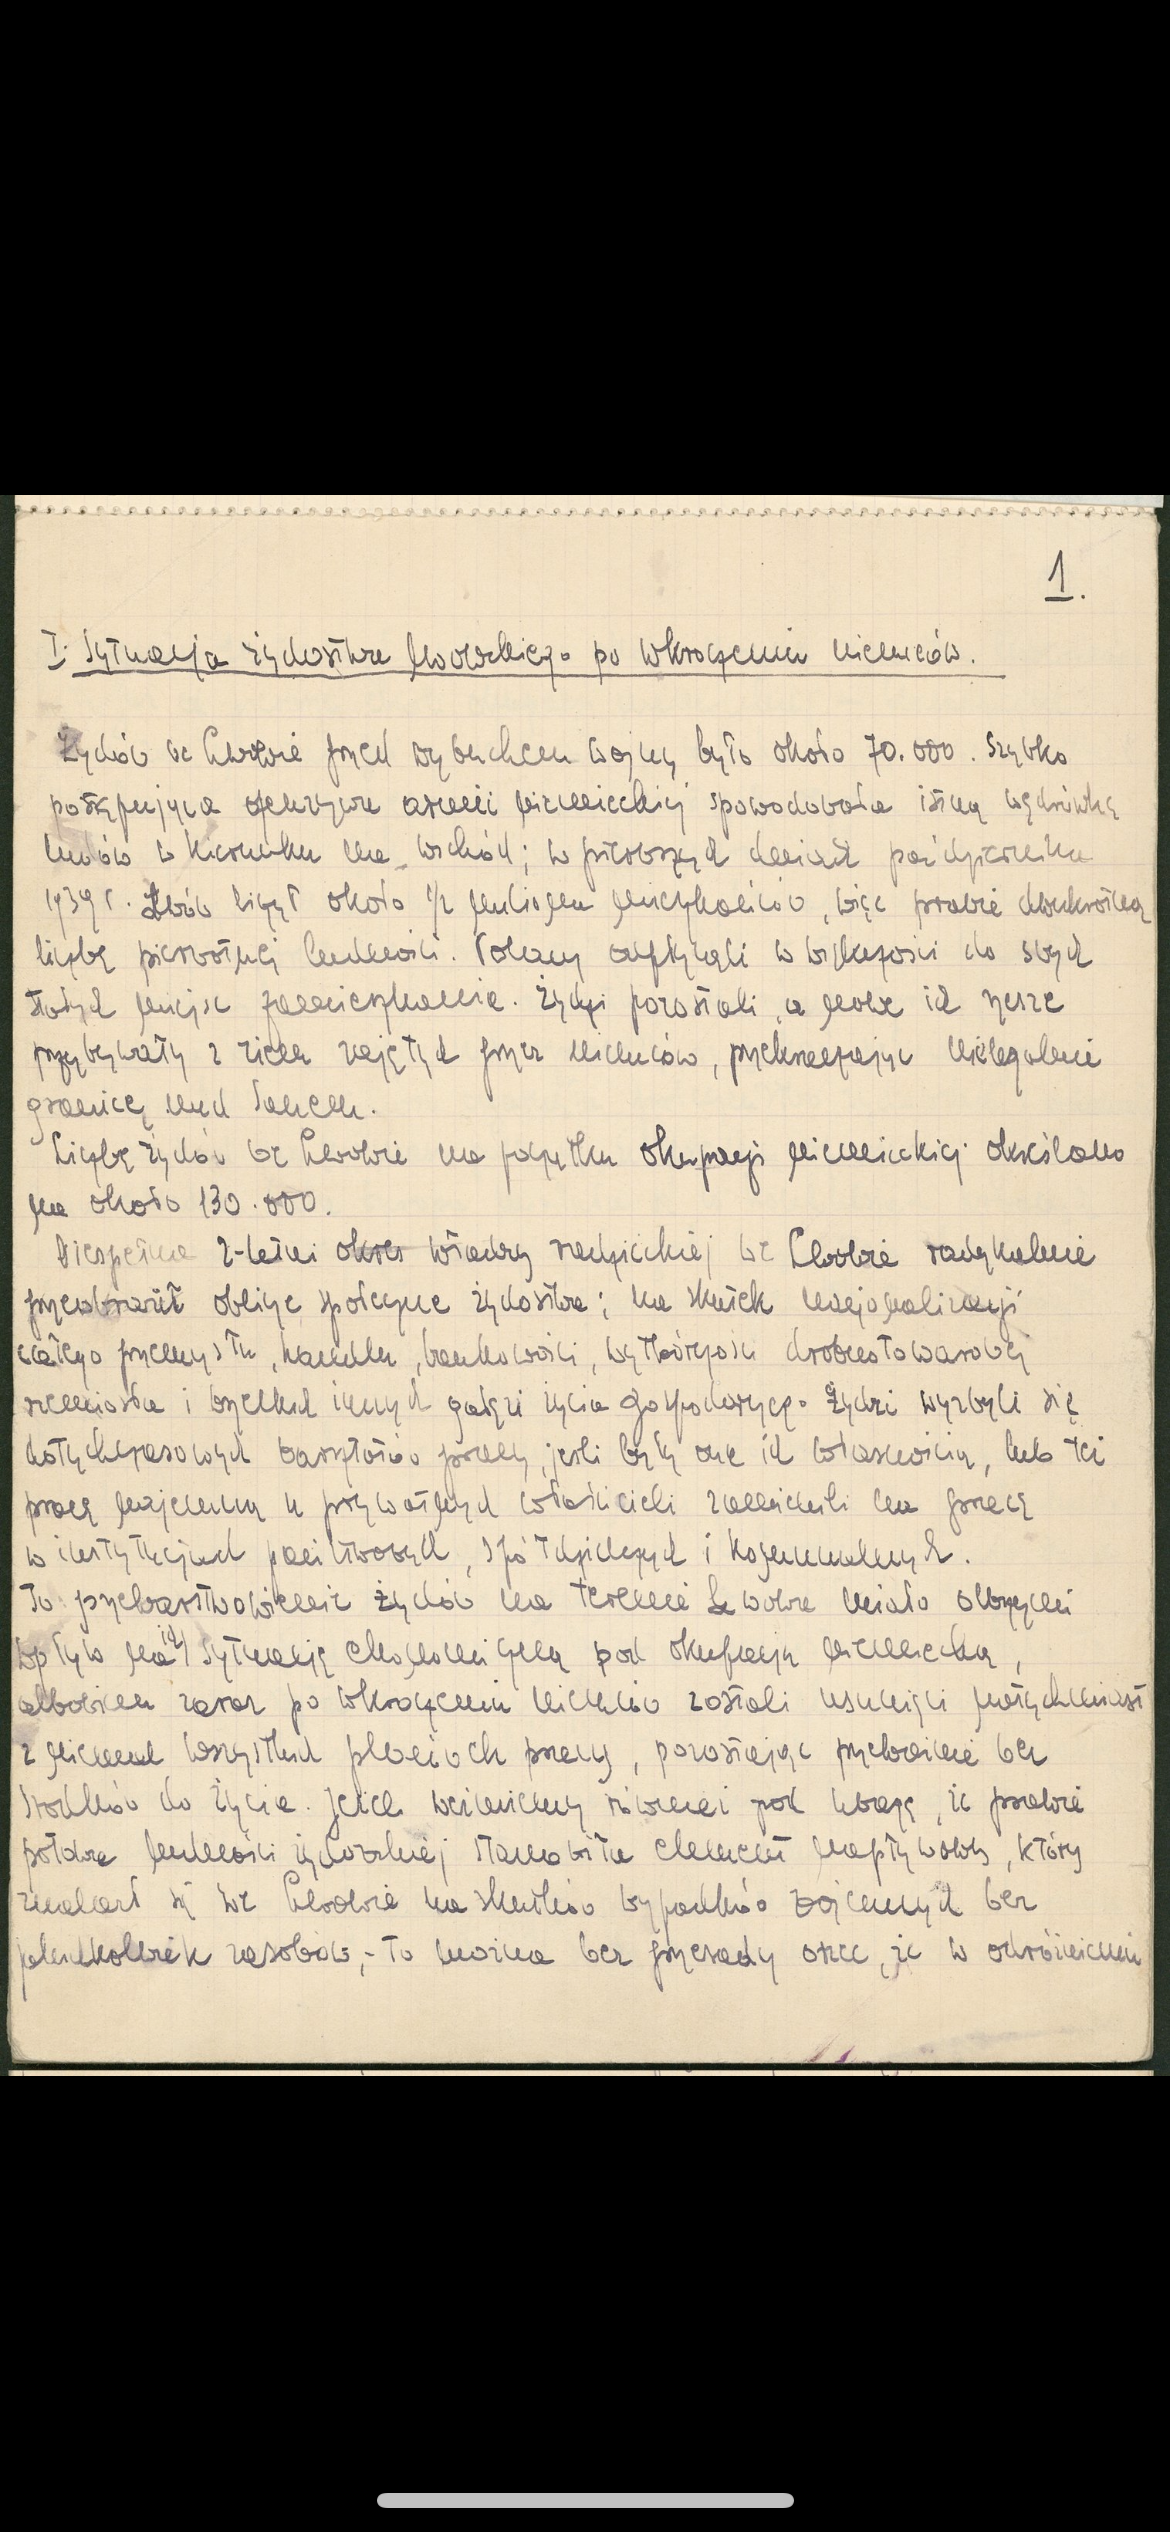 1.
I. Sytuacja żydostwa lwowskiego po wkroczeniu niemców.
Żydów we Lwowie przed wybuchem wojny było około 70.000. Szybko
postępująca ofenzywa armii niemieckiej spowodowała istną wędrówkę
ludów w kierunku na wschód; w pierwszych dniach października
1939 r. Lwów liczył około 1/2 miliona mieszkańców, więc prawie dwukrotną
liczbę pierwotnej ludności. Polacy odpłynęli w większości do swych
stałych miejsc zamieszkania. Żydzi pozostali, a nowe ich rzesze
przybywały z ziem zajętych przez niemców, przekraczając nielegalnie
granicę nad Sanem.
Liczbę żydów we Lwowie na początku okupacji niemieckiej określano
na około 130.000.
Niespełna 2-letni okres władzy radzieckiej we Lwowie radykalnie
przeobraził oblicze społeczne żydostwa; na skutek nacjonalizacji
całego przemysłu, handlu, bankowości, wytwórczości drobnotowarowej
rzemiosła i wszelkich innych gałęzi życia gospodarczego Żydzi wyzbyli się
dotychczasowych warsztatów pracy, jeśli były one ich własnością, lub też
pracę najemną u prywatnych właścicieli zamienili na pracę
w instytucjach państwowych, spółdzielczych i komunalnych.
To przewarstwowienie żydów na terenie Lwowa miało olbrzymi
wpływ na ich sytuację ekonomiczną pod okupacją niemiecką,
albowiem zaraz po wkroczeniu niemców zostali usunięci natychmiast
z niemal wszystkich placówek pracy, pozostając przeważnie bez
środków do życia. Jeżeli weźmiemy również pod uwagę, iż prawie
połowę ludności żydowskiej stanowił element napływowy, który
znalazł się we Lwowie na skutków wypadków wojennych bez
jakichkolwiek zasobów, - to można bez przesady orzec, że w odróżnieniu